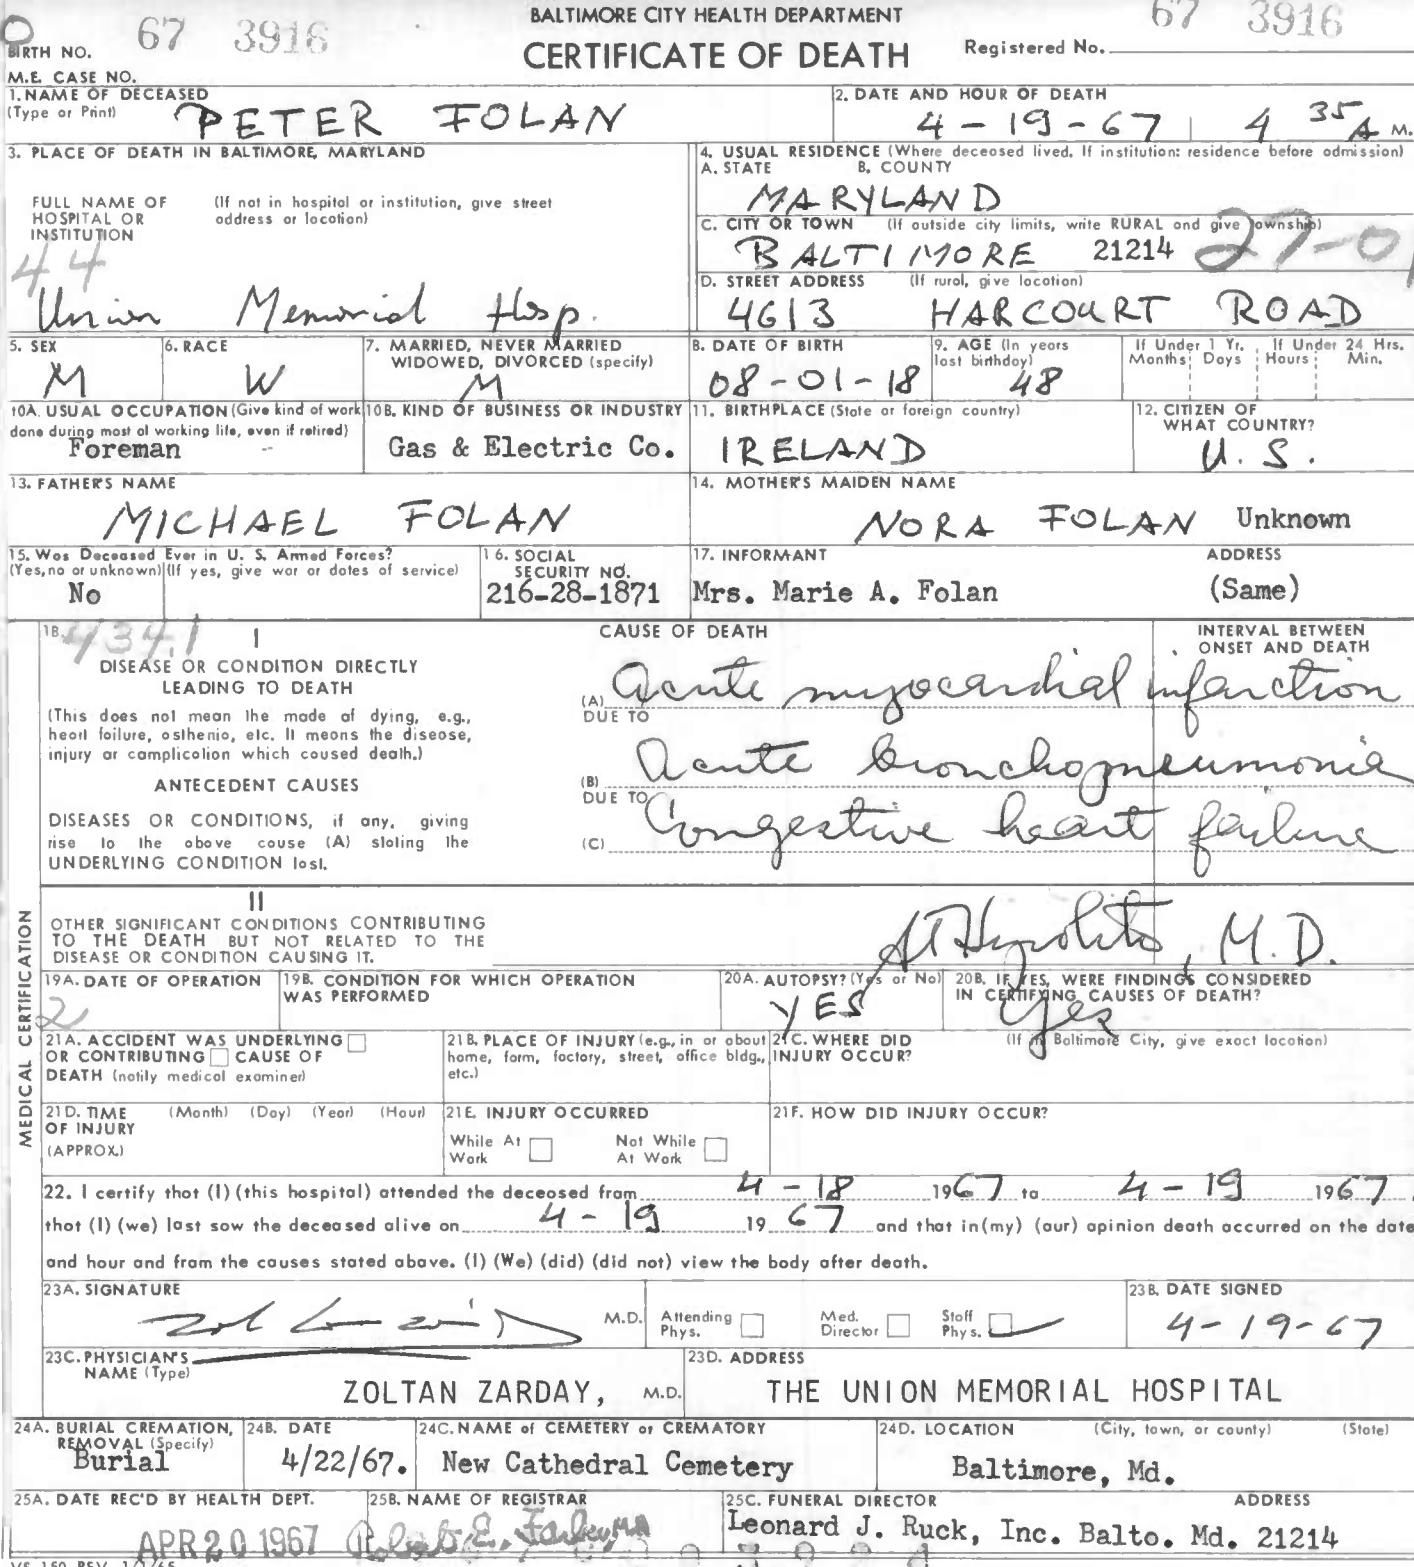 BALTIMORE CITY HEALTH DEPARTMENT
CERTIFICATE OF DEATH
BIRTH NO. 67 3916
Registered No. 67 3916
M.E. CASE NO.
1. NAME OF DECEASED
(Type or Print) PETER FOLAN
2. DATE AND HOUR OF DEATH
4-19-67 | 4 35 A M.
3. PLACE OF DEATH IN BALTIMORE, MARYLAND
FULL NAME OF HOSPITAL OR INSTITUTION
(If not in hospital or institution, give street address or location)
44
Union Memorial Hosp.
4. USUAL RESIDENCE (Where deceased lived. If institution: residence before admission)
A. STATE B. COUNTY
MARYLAND
C. CITY OR TOWN (If outside city limits, write RURAL and give township)
BALTIMORE 21214 27-01
D. STREET ADDRESS (If rural, give location)
4613 HARCOURT ROAD
5. SEX
M
6. RACE
W
7. MARRIED, NEVER MARRIED
WIDOWED, DIVORCED (specify)
M
8. DATE OF BIRTH
08-01-18
9. AGE (In years last birthday)
48
If Under 1 Yr. Months Days
If Under 24 Hrs. Hours Min.
10A. USUAL OCCUPATION (Give kind of work
done during most of working life, even if retired)
Foreman -
10B. KIND OF BUSINESS OR INDUSTRY
Gas & Electric Co.
11. BIRTHPLACE (State or foreign country)
IRELAND
12. CITIZEN OF
WHAT COUNTRY?
U. S.
13. FATHER'S NAME
MICHAEL FOLAN
14. MOTHER'S MAIDEN NAME
NORA FOLAN Unknown
15. Was Deceased Ever in U. S. Armed Forces?
(Yes, no or unknown) (If yes, give war or dates of service)
No
16. SOCIAL
SECURITY NO.
216-28-1871
17. INFORMANT ADDRESS
Mrs. Marie A. Folan (Same)
MEDICAL CERTIFICATION
18. 434.1 I
DISEASE OR CONDITION DIRECTLY
LEADING TO DEATH
(This does not mean the mode of dying, e.g.,
heart failure, asthenia, etc. It means the disease,
injury or complication which caused death.)
ANTECEDENT CAUSES
DISEASES OR CONDITIONS, if any, giving
rise to the above cause (A) stating the
UNDERLYING CONDITION last.
CAUSE OF DEATH
INTERVAL BETWEEN
ONSET AND DEATH
(A) Acute myocardial infarction
DUE TO
(B) Acute bronchopneumonia
DUE TO
(C) Congestive heart failure
II
OTHER SIGNIFICANT CONDITIONS CONTRIBUTING
TO THE DEATH BUT NOT RELATED TO THE
DISEASE OR CONDITION CAUSING IT.
M.D.
19A. DATE OF OPERATION
2
19B. CONDITION FOR WHICH OPERATION
WAS PERFORMED
20A. AUTOPSY? (Yes or No)
YES
20B. IF YES, WERE FINDINGS CONSIDERED
IN CERTIFYING CAUSES OF DEATH?
Yes
21A. ACCIDENT WAS UNDERLYING
OR CONTRIBUTING CAUSE OF
DEATH (notify medical examiner)
21B. PLACE OF INJURY (e.g., in or about
home, farm, factory, street, office bldg.,
etc.)
21C. WHERE DID (If in Baltimore City, give exact location)
INJURY OCCUR?
21D. TIME (Month) (Day) (Year) (Hour)
OF INJURY
(APPROX.)
21E. INJURY OCCURRED
While At Work
Not While At Work
21F. HOW DID INJURY OCCUR?
22. I certify that (I) (this hospital) attended the deceased from 4-18 1967 to 4-19 1967,
that (I) (we) last saw the deceased alive on 4-19 19 67 and that in (my) (our) opinion death occurred on the date
and hour and from the causes stated above. (I) (We) (did) (did not) view the body after death.
23A. SIGNATURE
M.D.
Attending Phys.
Med. Director
Staff Phys.
23B. DATE SIGNED
4-19-67
23C. PHYSICIAN'S
NAME (Type)
ZOLTAN ZARDAY, M.D.
23D. ADDRESS
THE UNION MEMORIAL HOSPITAL
24A. BURIAL CREMATION,
REMOVAL (Specify)
Burial
24B. DATE
4/22/67.
24C. NAME of CEMETERY or CREMATORY
New Cathedral Cemetery
24D. LOCATION (City, town, or county) (State)
Baltimore, Md.
25A. DATE REC'D BY HEALTH DEPT.
APR 20 1967
25B. NAME OF REGISTRAR
Robert E. Farber, MD
25C. FUNERAL DIRECTOR ADDRESS
Leonard J. Ruck, Inc. Balto. Md. 21214
VS 150 REV. 1/1/65